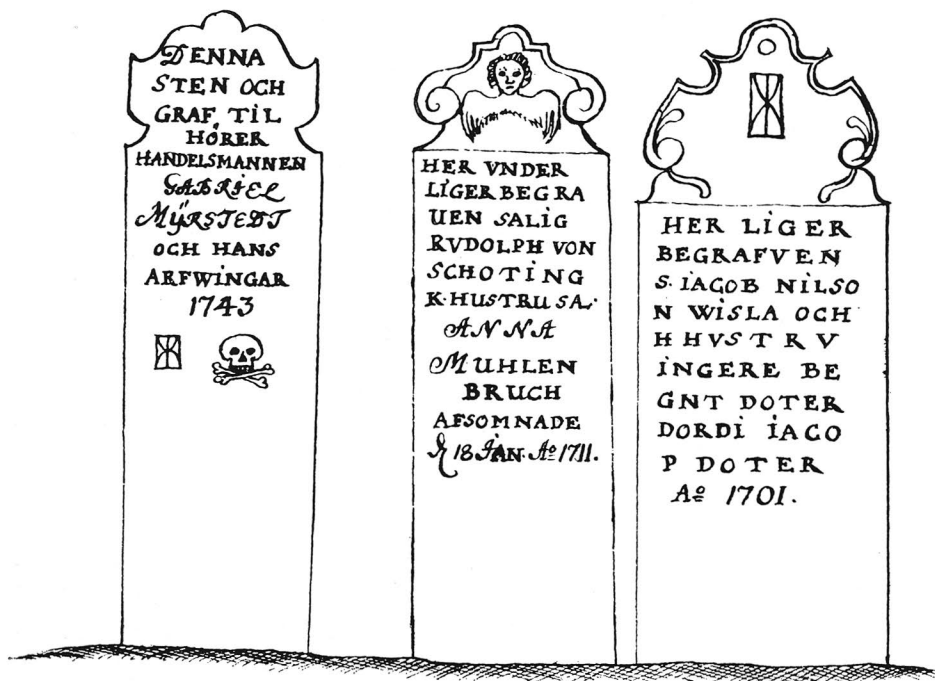 DENNA
STEN OCH
GRAF TIL
HÖRER
HANDELSMANNEN
GABRIEL
MÿRSTEDT
OCH HANS
ARFWINGAR
1743
HER VNDER
LIGER BEGRA
UEN SALIG
RVDOLPH VON
SCHOTING
K·HUSTRU SA·
ANNA
MUHLEN
BRUCH
AFSOMNADE
18 JAN· Ao 1711.
HER LIGER
BEGRAFVEN
S· IACOB NILSO
N WISLA OCH
H HVSTRV
INGERE BE
GNT DOTER
DORDI IACO
P DOTER
Ao 1701.